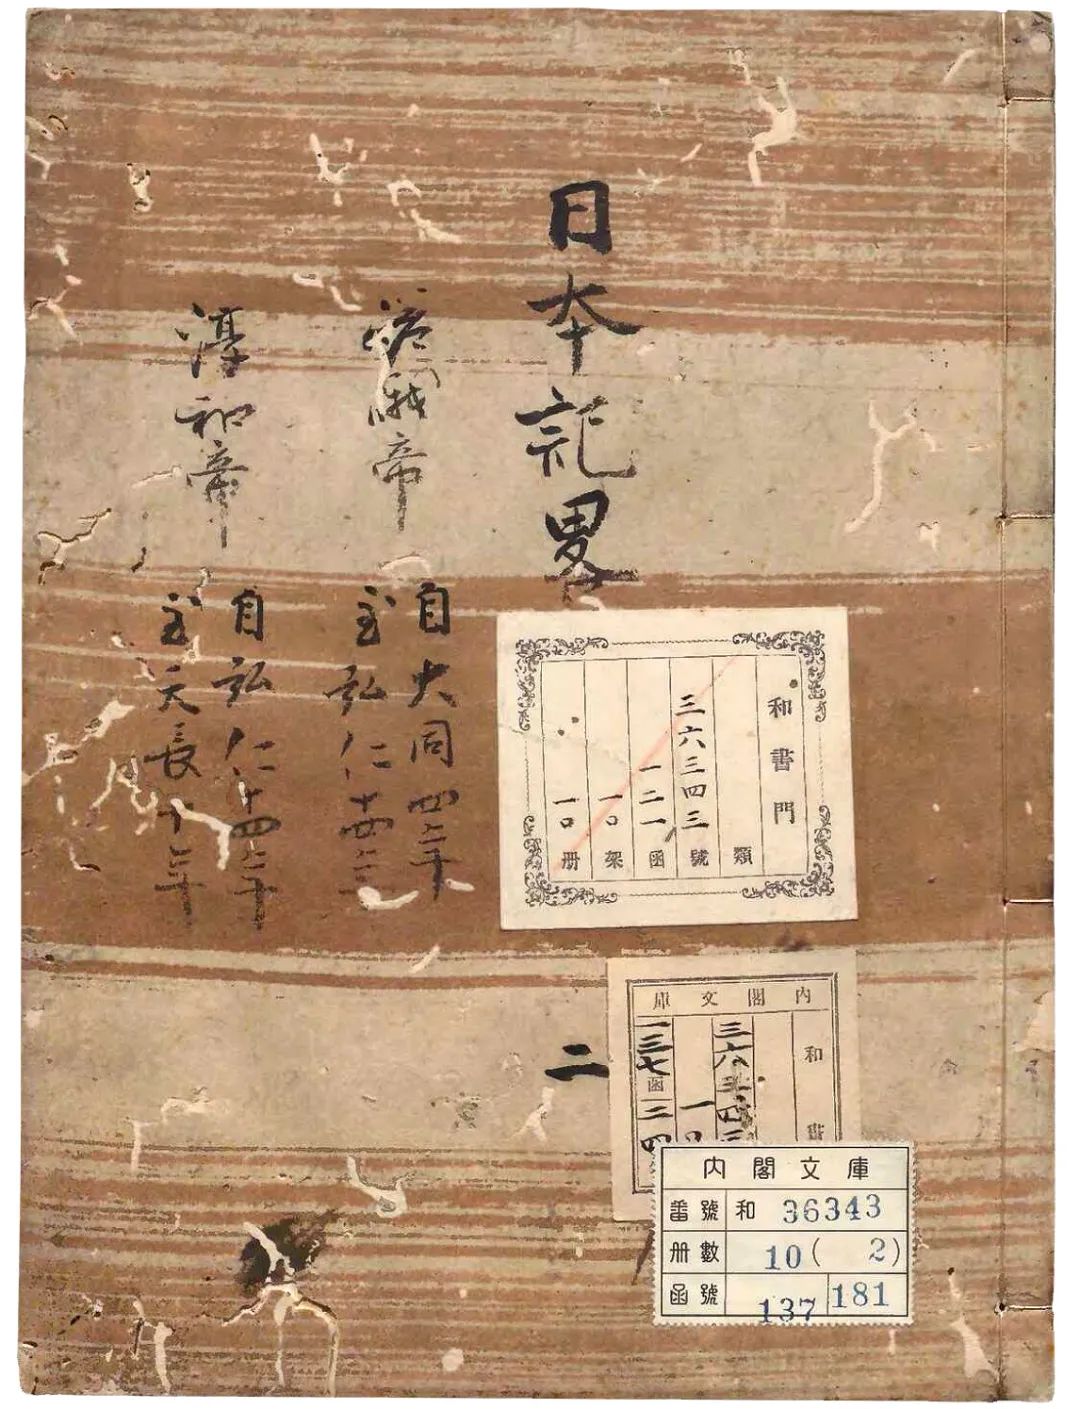 日本記畧
嵯峨帝
自大同四年
至弘仁十四年
淳和帝
自弘仁十四年
至天長十年
二
和書門
類
三六三四三號
一二一函
一〇架
一〇册
内閣文庫
和書
三六三四三
一〇
一三七函二四
内閣文庫
番號 和 36343
册數 10(2)
函號 137 181